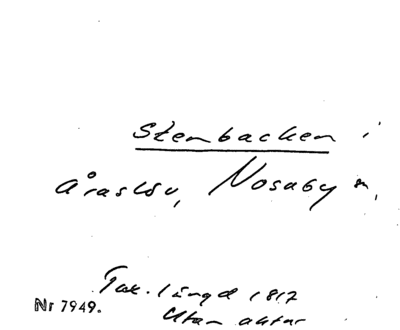 Stenbacken i
Åraslöv, Nosaby sn,
Tax. längd 1812
Nr 7949.
Utan aktar